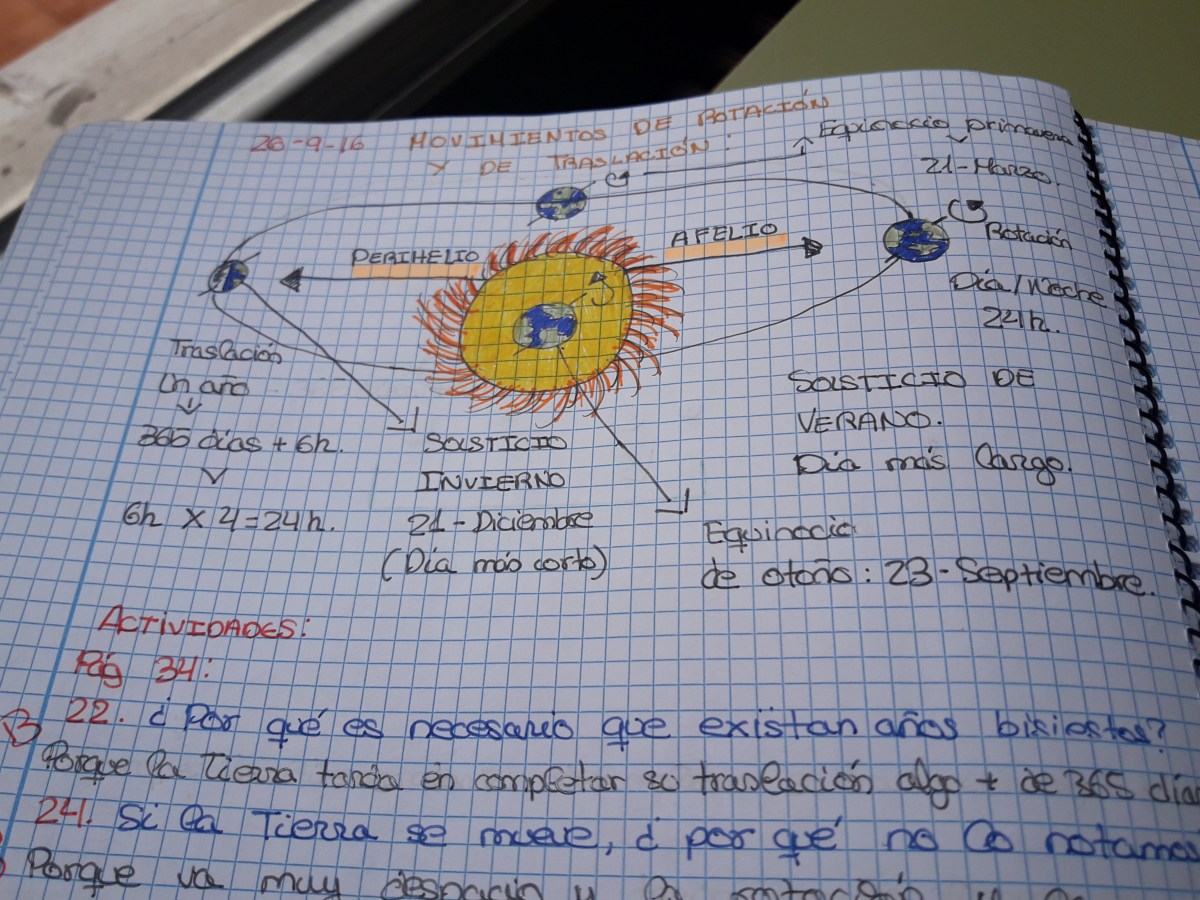 28-9-16 MOVIMIENTOS DE ROTACIÓN
Y DE TRASLACIÓN:
Equinoccio primavera
21-Marzo.
PERIHELIO
AFELIO
Rotación
Día/Noche
24h.
Traslación
Un año
365 días + 6h.
6h x 4 = 24h.
SOLSTICIO
INVIERNO
21-Diciembre
(Día más corto)
SOLSTICIO DE
VERANO.
Día más largo.
Equinocio
de otoño: 23-Septiembre.
ACTIVIDADES:
Pág 34:
22. ¿Por qué es necesario que existan años bisiestos?
Porque la Tierra tarda en completar su traslación algo + de 365 días
24. Si la Tierra se mueve, ¿por qué no lo notamos
Porque va muy despacio y la rotación y